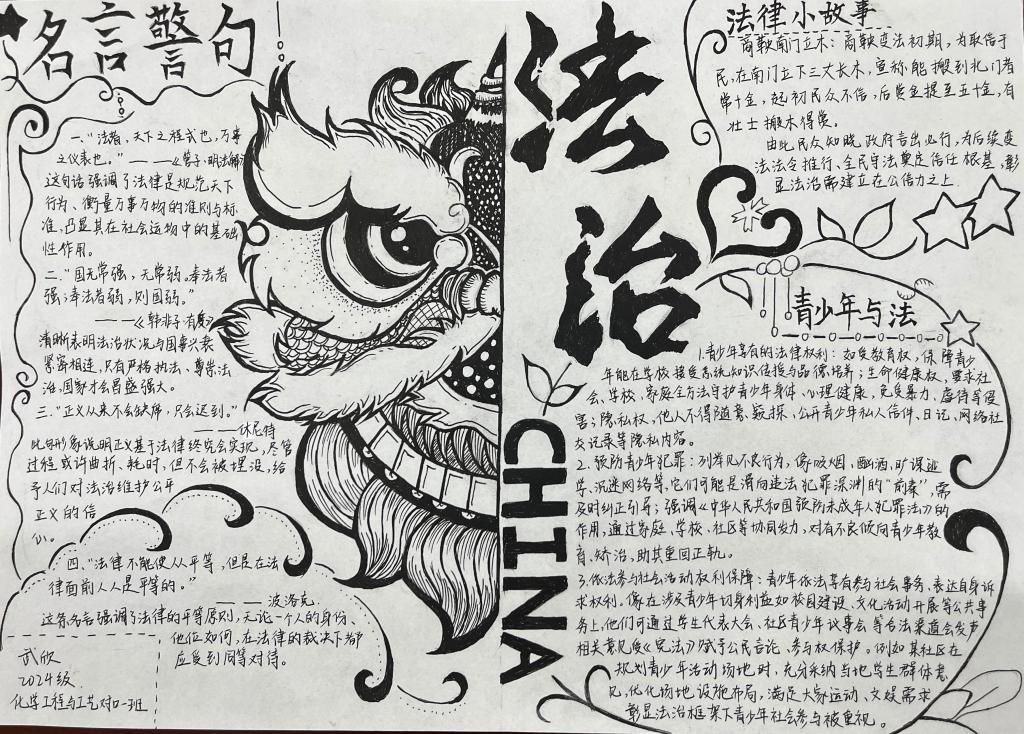 名言警句
一、“法者，天下之程式也，万事
之仪表也。”——《管子·明法解》
这句话强调了法律是规范天下
行为、衡量万事万物的准则与标
准，凸显其在社会运物中的基础
性作用。
二、“国无常强，无常弱。奉法者
强；奉法者弱，则国弱。”
——《韩非子·有度》
清晰表明法治状况与国事兴衰
紧密相连，只有严格执法、尊崇法
治，国家才会昌盛强大。
三、“正义从来不会缺席，只会迟到。”
——休尼特
此句形象说明正义基于法律终究会实现，尽管
过程或许曲折、耗时，但不会被埋没，给
予人们对法治维护公平
正义的信
心。
四、“法律不能使人从平等，但是在法
律面前人人是平等的。”
——波洛克
这条名言强调了法律的平等原则，无论一个人的身份、
他位如何，在法律的裁决下都
应受到同等对待。
武欣
2024级
化学工程与工艺对口一班
法治
CHINA
法律小故事
商鞅南门立木：商鞅变法初期，为取信于
民，在南门立下三丈长木，宣称能搬到北门者
常十金，起初民众不信，后赏金提至五十金，有
壮士搬木得赏。
由此民众知晓，政府言出必行，为后续变
法法令推行、全民守法奠定信任根基，彰
显法治需建立在公信力之上
青少年与法
1.青少年享有的法律权利：如受教育权，保障青少
年能在学校接受系统知识传授与品德培养；生命健康权，要求社
会、学校、家庭全方法守护青少年身体、心理健康，免受暴力、虐待等侵
害；隐私权，他人不得随意窥探、公开青少年私人信件、日记、网络社
交记录等隐私内容。
2.预防青少年犯罪：列举见不良行为，像吸烟、酗酒、旷课逃
学、沉迷网络等，它们可能是滑向违法犯罪深渊的“前奏”，需
及时纠正引导；强调《中华人民共和国预防未成年人犯罪法》的
作用，通过家庭、学校、社区等协同发力，对有不良倾向青少年教
育、矫治，助其重回正轨。
3.依法参与社会活动权利保障：青少年依法享有参与社会事务、表达自身诉
求权利。像在涉及青少年切身利益如校园建设、文化活动开展等公共事
务上，他们可通过学生代表大会、社区青少年议事会等合法渠道会发声
相关意见，使《宪法》赋予公民言论、参与权保护。例如某社区在
规划青少年活动场地时，充分采纳与地学生群体意
见，优化场地设施布局，满足大家运动、文娱需求
彰显法治框架下青少年社会参与被重视。